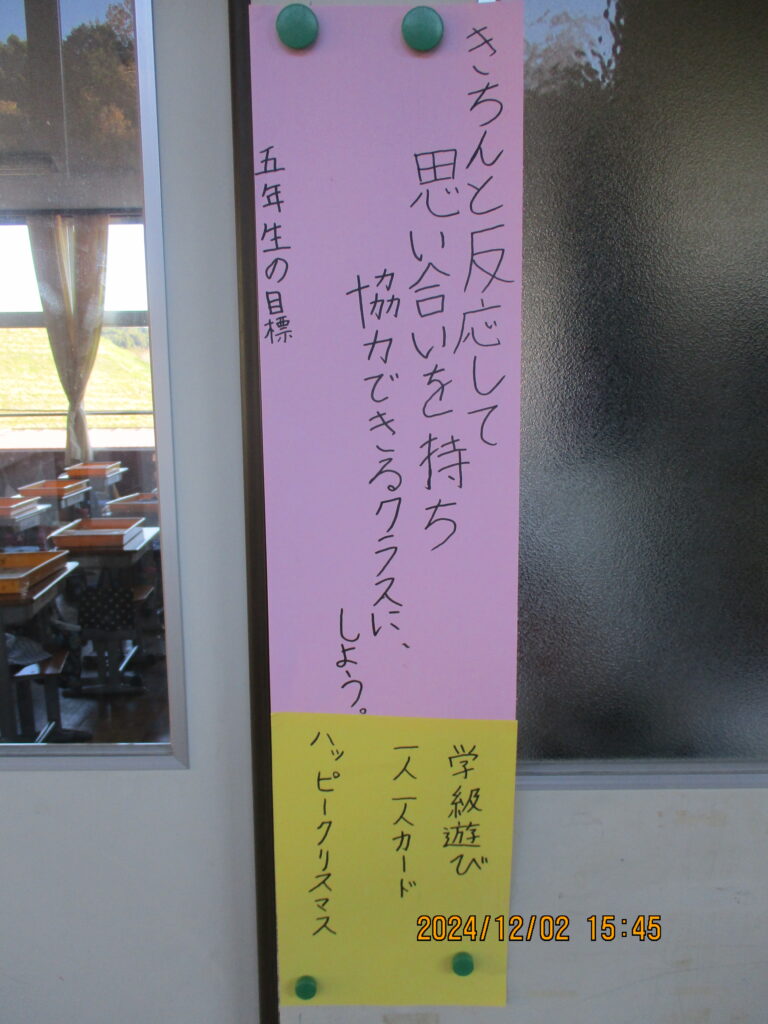 きちんと反応して
思い合いを持ち
協力できるクラスに、
しよう。
五年生の目標
学級遊び
一人一人カード
ハッピークリスマス
2024/12/02 15:45